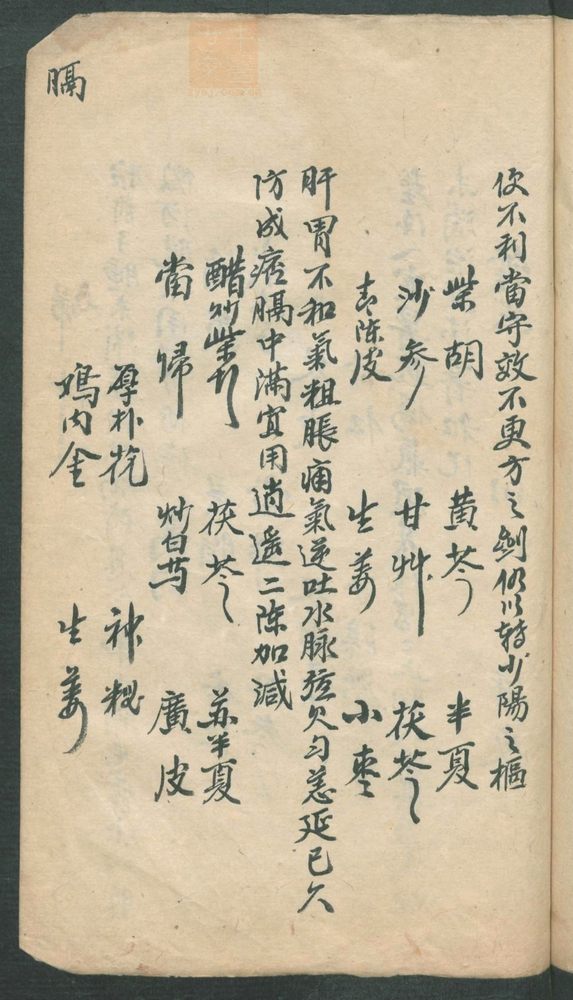 便不利當守效不更方之例仍以轉少陽之樞
柴胡 黃芩 半夏
沙參 甘艸 茯苓
青陳皮 生姜 小棗
肝胃不和氣粗脹痛氣逆吐水脉弦欠勻恙延已久
防成瘧膈中滿宜用逍遥二陳加減
醋炒柴胡 茯苓 苏半夏
當歸 炒白芍 廣皮
厚朴花 神粬
鳮內金 生姜
膈